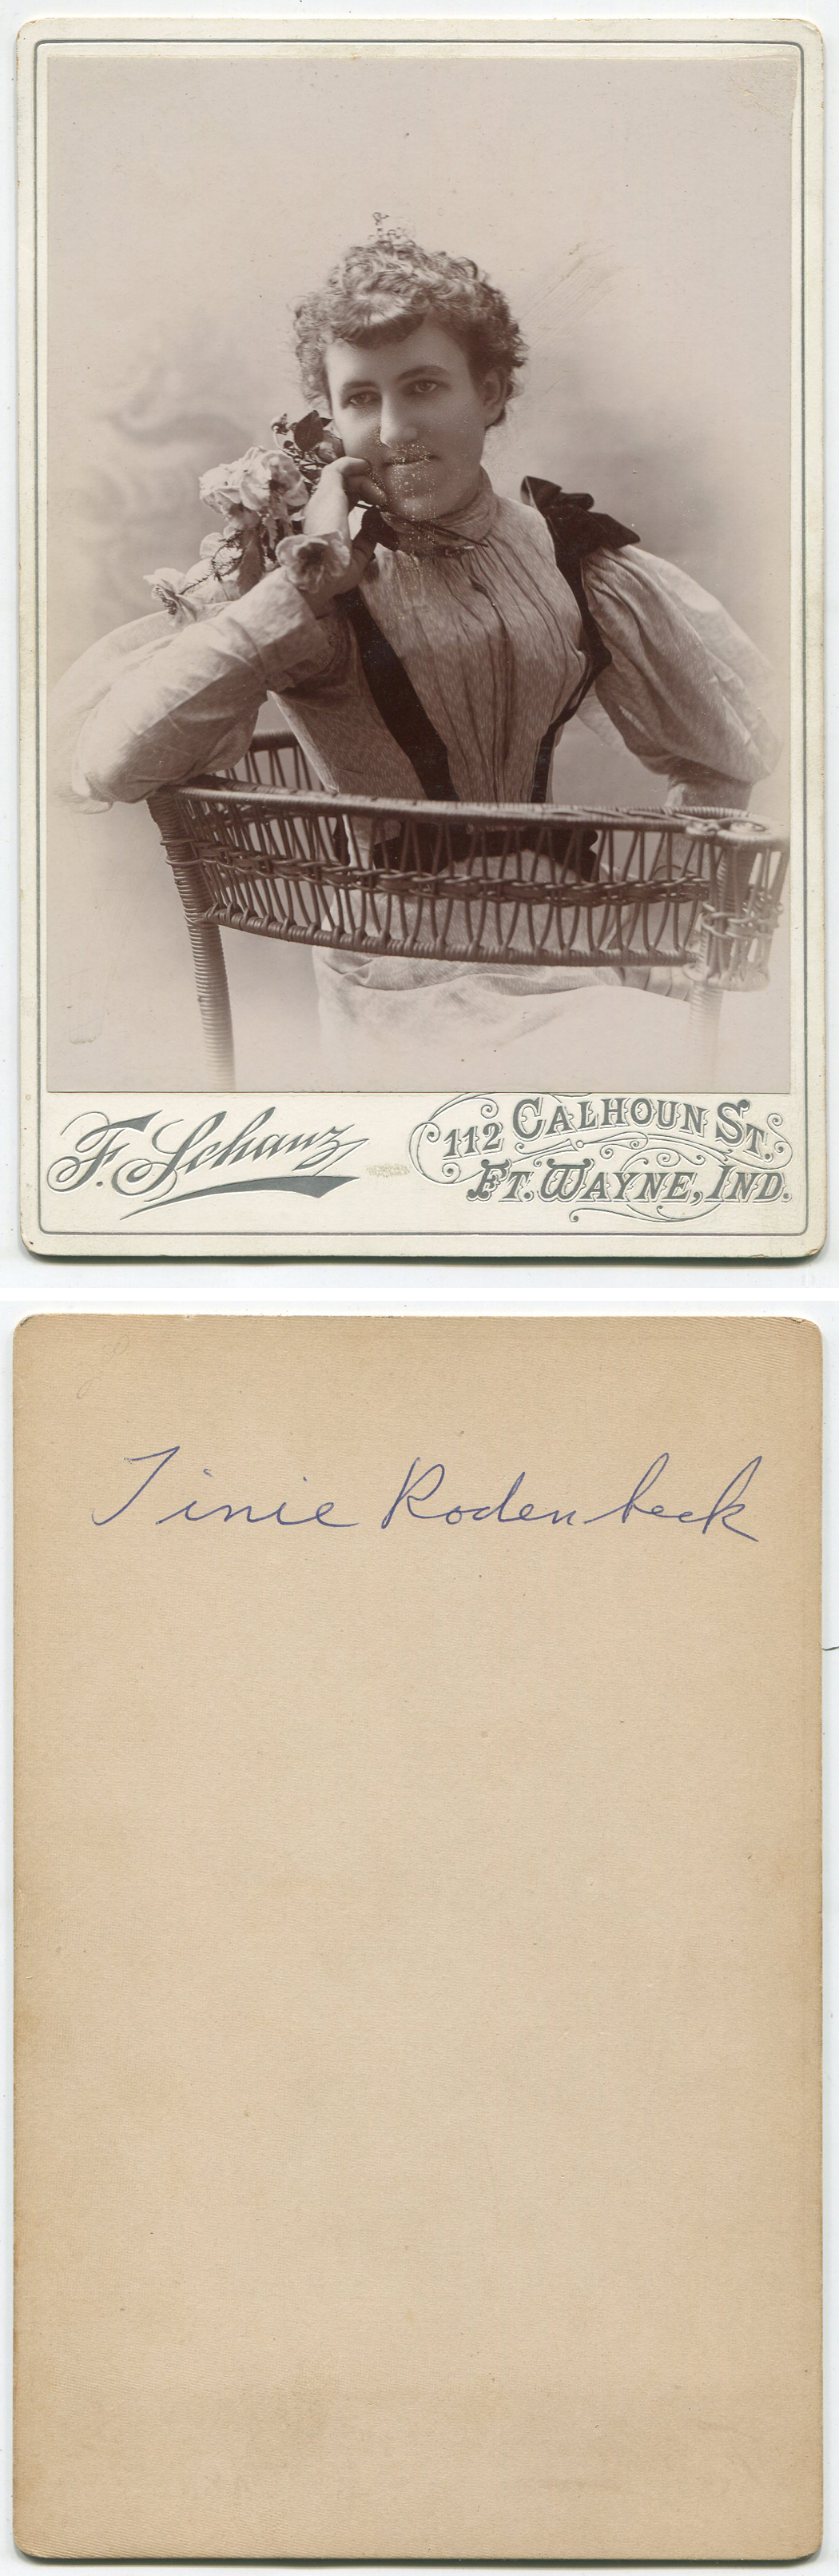 F. Schanz
112 CALHOUN ST.
FT. WAYNE, IND.
Tinie Rodenbeck